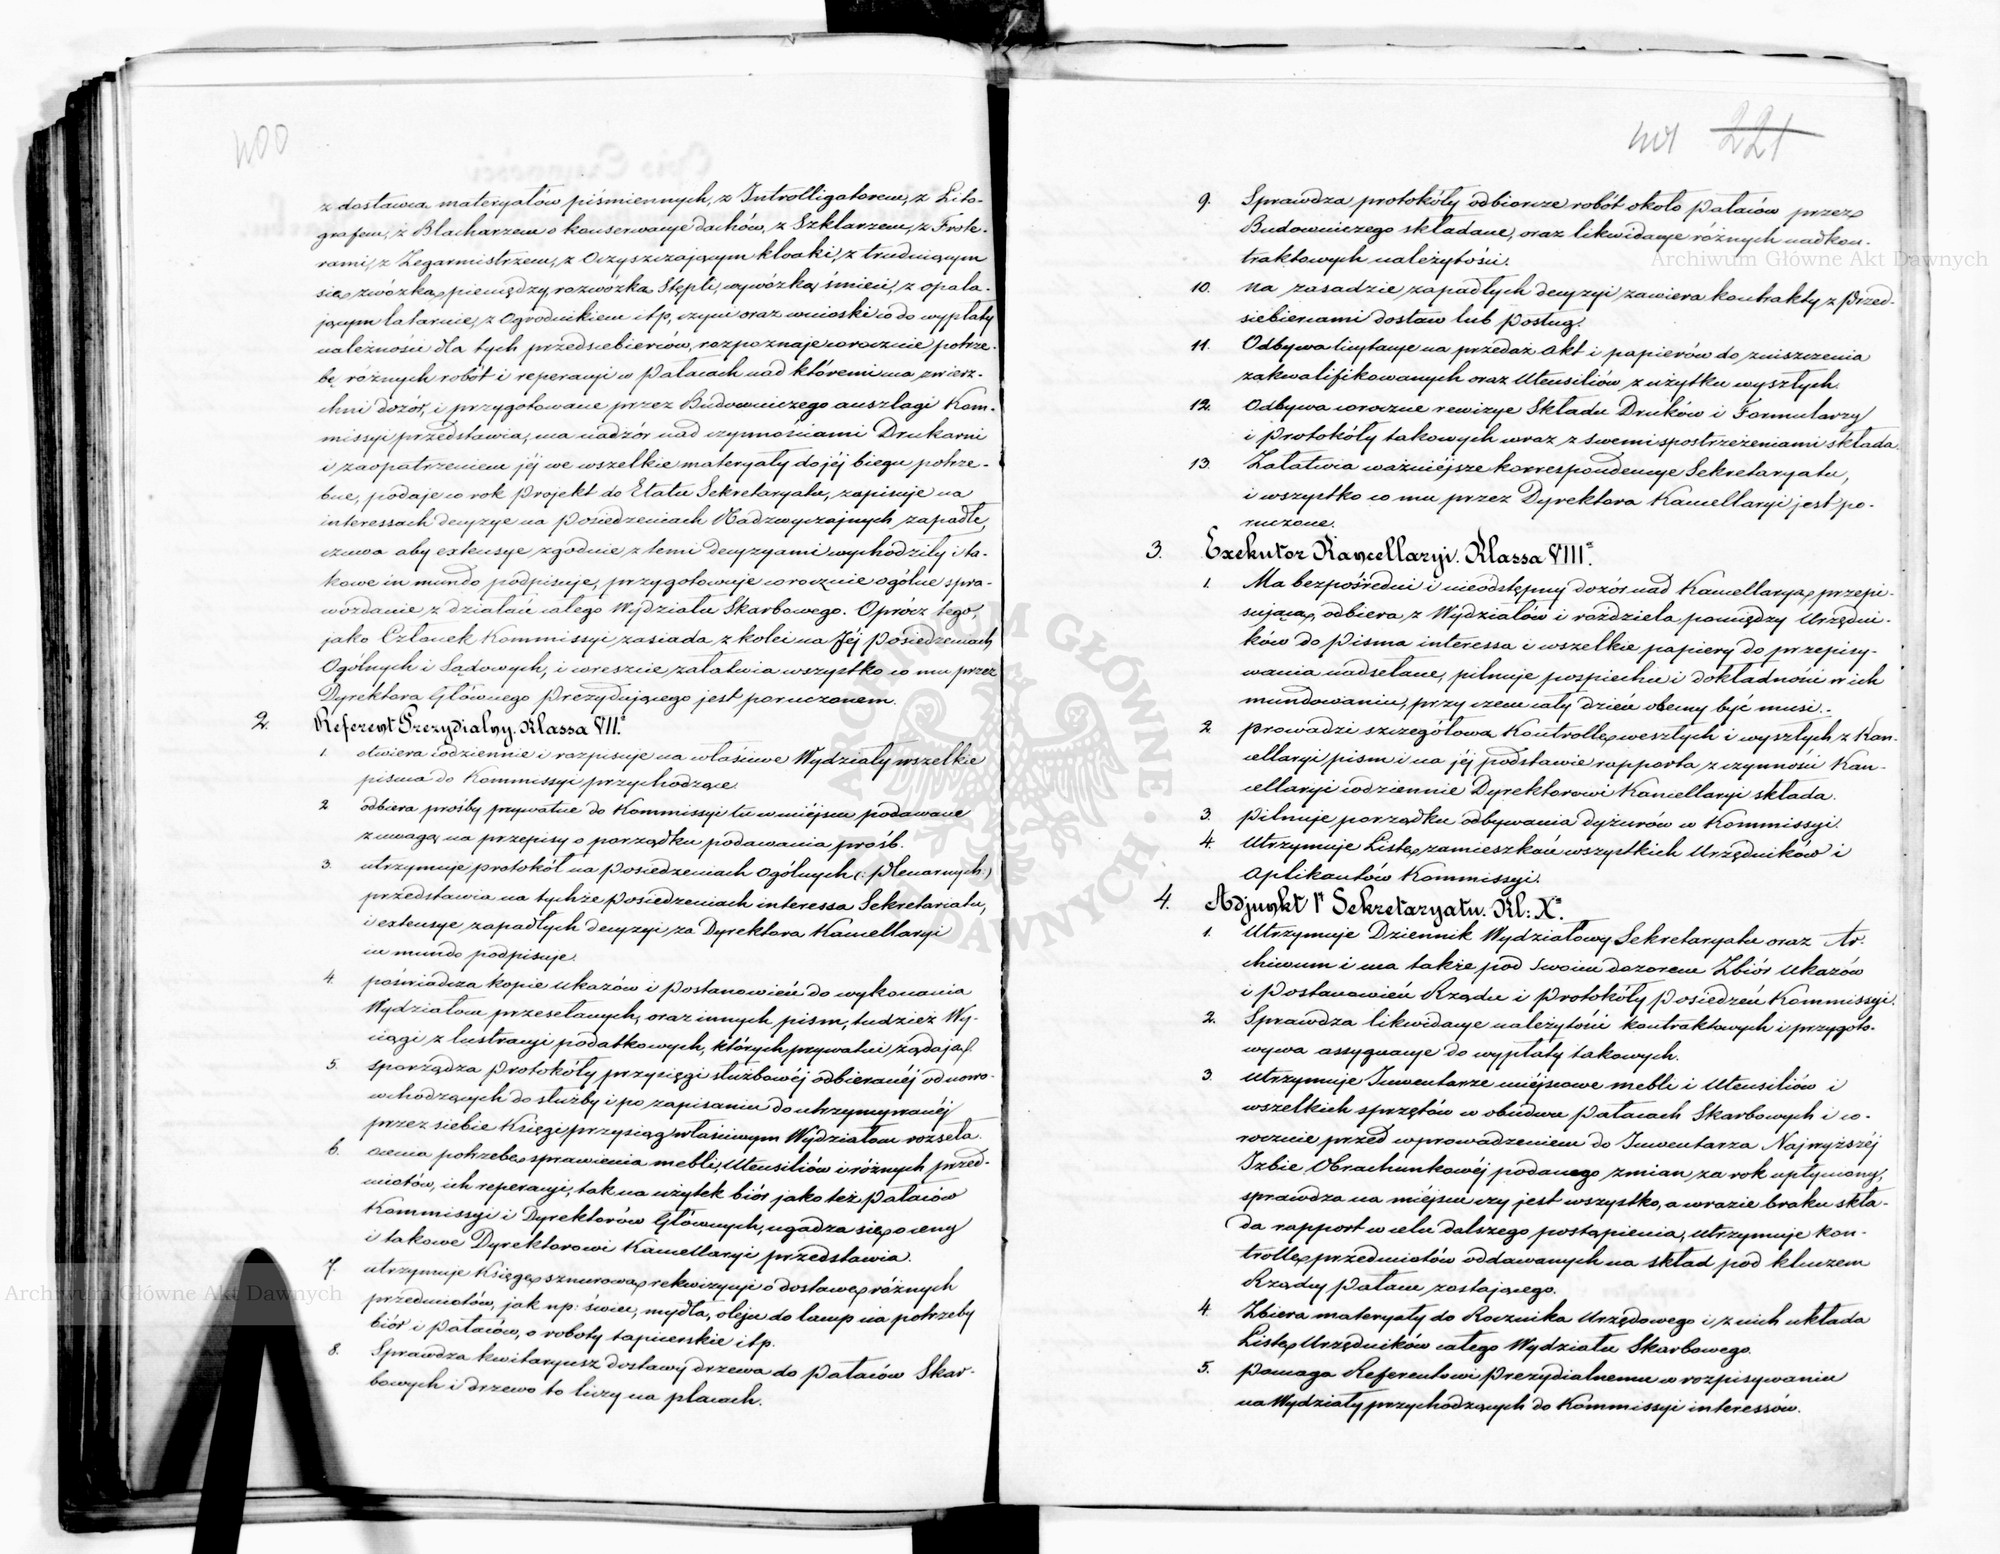 400
z dostawcą materyałów piśmiennych, z Introlligatorem, z Lito-
grafem, z Blacharzem o konserwacye dachów, z Szklarzem, z Frote-
rami, z Zegarmistrzem, z Oczyszczającym kloaki, z trudniącym
się zwózką pieniędzy, rozwózką Stępli, wywózką śmieci, z opala-
jącym latarnie, z Ogrodnikiem itp, czyni oraz wnioski co do wypłaty
należności dla tych przedsiebierców, rozpoznaje corocznie potrze-
bę różnych robót i reperacyi w Pałacach nad któremi ma zwierz-
chni dozór, i przygotowane przez Budowniczego anszlagi Kom-
missyi przedstawia, ma nadzór nad czynnościami Drukarni
i zaopatrzeniem jéj we wszelkie materyały do jéj biegu potrze-
bne, podaje co rok Projekt do Etatu Sekretaryatu, zapisuje na
interessach decyzye na Posiedzeniach Nadzwyczajnych zapadłe,
czuwa aby extensye zgodnie z temi decyzyami wychodziły i ta-
kowe in mundo podpisuje, przygotowuje corocznie ogólne spra-
wozdanie z działań całego Wydziału Skarbowego. Oprócz tego,
jako Członek Kommissyi zasiada z kolei na Jéj Posiedzeniach
Ogólnych i Sądowych, i wreszcie załatwia wszystko co mu przez
Dyrektora Głównego Prezydującego jest poruczonem.
2. Referent Prezydialny. Klassa VII.
1. otwiera codziennie i rozpisuje na właściwe Wydziały wszelkie
pisma do Kommissyi przychodzące.
2 odbiera prośby prywatne do Kommissyi tu w miéjscu podawane
z uwagą na przepisy o porządku podawania próśb.
3. utrzymuje protokół na Posiedzeniach Ogólnych (: Plenarnych:)
przedstawia na tychże Posiedzeniach interessa Sekretariatu,
i extensye zapadłych decyzyi za Dyrektora Kancellaryi
in mundo podpisuje.
4. poświadcza kopie Ukazów i Postanowień do wykonania
Wydziałom przesełanych, oraz innych pism, tudzież Wy-
ciągi z lustracyi podatkowych, których prywatni żądają.
5. sporządza Protokóły przysięgi służbowéj odbieranéj od nowo-
wchodzących do służby i po zapisaniu do utrzymywanéj
przez siebie Księgi przysiąg właściwym Wydziałom rozseła.
6. ocenia potrzebę sprawienia mebli, Utensiliów i różnych przed-
miotów, ich reperacyi, tak na użytek biór jako też Pałaców
Kommissyi i Dyrektorów Głównych, ugadza się o ceny
i takowe Dyrektorowi Kancellaryi przedstawia.
7. utrzymuje Księgę sznurową rekwizycyi o dostawę różnych
przedmiotów, jak np: świec, mydła, oleju do lamp na potrzeby
biór i Pałaców, o roboty tapicerskie itp.
8. Sprawdza kwitaryusz dostawy drzewa do Pałaców Skar-
bowych i drzewo to liczy na placach.
401 221
9. Sprawdza protokóły odbiorcze robót około Pałaców przez
Budowniczego składane, oraz likwidacye różnych nadkon-
traktowych należytości.
10. na zasadzie zapadłych decyzyi zawiera kontrakty z Przed-
siebiercami dostaw lub posług.
11. Odbywa licytacye na przedaż akt i papierów do zniszczenia
zakwalifikowanych oraz Utensiliów z użytku wyszłych.
12. Odbywa coroczne rewizye Składu Druków i Formularzy
i Protokóły takowych wraz z swemi spostrzeżeniami składa.
13. Załatwia ważniéjsze korrespondencye Sekretaryatu,
i wszystko co mu przez Dyrektora Kancellaryi jest po-
ruczone.
3. Exekutor Kancellaryi. Klassa VIII.
1. Ma bezpośredni i nieodstępny dozór nad Kancellaryą przepi-
sującą, odbiera z Wydziałów i rozdziela pomiędzy Urzędni-
ków do pisma interessa i wszelkie papiery do przepisy-
wania nadsełane, pilnuje pospiechu i dokładności w ich
mundowaniu, przy czem cały dzień obecny być musi.
2 Prowadzi szczegółową Kontrollę weszłych i wyszłych z Kan-
cellaryi pism i na jéj podstawie rapporta z czynności Kan-
cellaryi codziennie Dyrektorowi Kancellaryi składa.
3. Pilnuje porządku odbywania dyżurów w Kommissyi.
4. Utrzymuje Listę zamieszkań wszystkich Urzędników i
Aplikantów Kommissyi.
4. Adjunkt 1 Sekretaryatu. Kl: X.
1. Utrzymuje Dziennik Wydziałowy Sekretaryatu oraz Ar-
chiwum i ma także pod swoim dozorem Zbiór Ukazów
i Postanowień Rządu i Protokóły Posiedzeń Kommissyi.
2. Sprawdza likwidacye należytości kontraktowych i przygoto-
wywa assygnacye do wypłaty takowych.
3. Utrzymuje Inwentarze miéjscowe mebli i Utensiliów i
wszelkich sprzętów w obudwu Pałacach Skarbowych i co-
rocznie przed wprowadzeniem do Inwentarza Najwyższéj
Izbie Obrachunkowéj podanego zmian za rok upłyniony,
sprawdza na miéjscu czy jest wszystko, a w razie braku skła-
da rapport w celu dalszego postąpienia, utrzymuje kon-
trollę przedmiotów oddawanych na skład pod kluczem
Rządcy Pałacu zostającego.
4. Zbiera materyały do Rocznika Urzędowego i z nich układa
Listę Urzędników całego Wydziału Skarbowego.
5. Pomaga Referentowi Prezydialnemu w rozpisywaniu
na Wydziały przychodzących do Kommissyi interessów.
Archiwum Główne Akt Dawnych
Archiwum Główne Akt Dawnych
ARCHIWUM GŁÓWNE AKT DAWNYCH